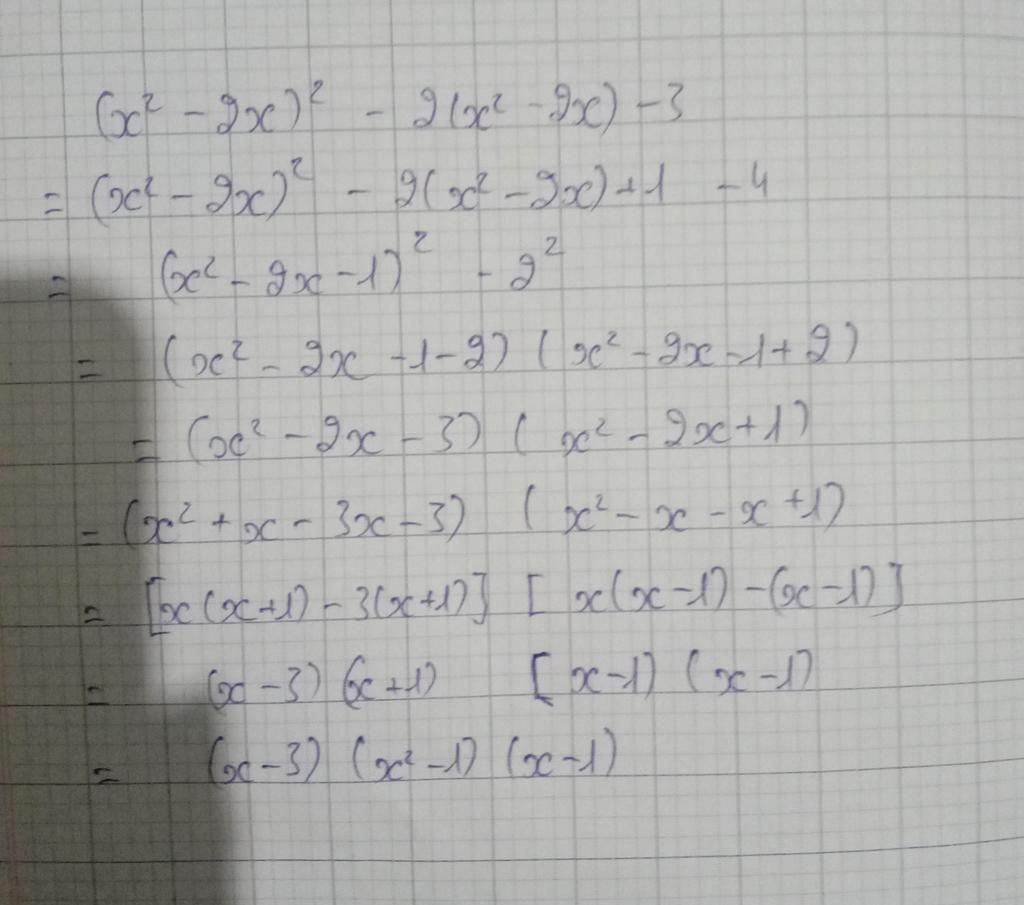 (x² - 2x)² - 2(x² - 2x) - 3
= (x² - 2x)² - 2(x² - 2x) + 1 - 4
= (x² - 2x - 1)² - 2²
= (x² - 2x - 1 - 2) (x² - 2x - 1 + 2)
= (x² - 2x - 3) (x² - 2x + 1)
= (x² + x - 3x - 3) (x² - x - x + 1)
= [x(x + 1) - 3(x + 1)] [x(x - 1) - (x - 1)]
= (x - 3) (x + 1) [x - 1) (x - 1)
= (x - 3) (x² - 1) (x - 1)